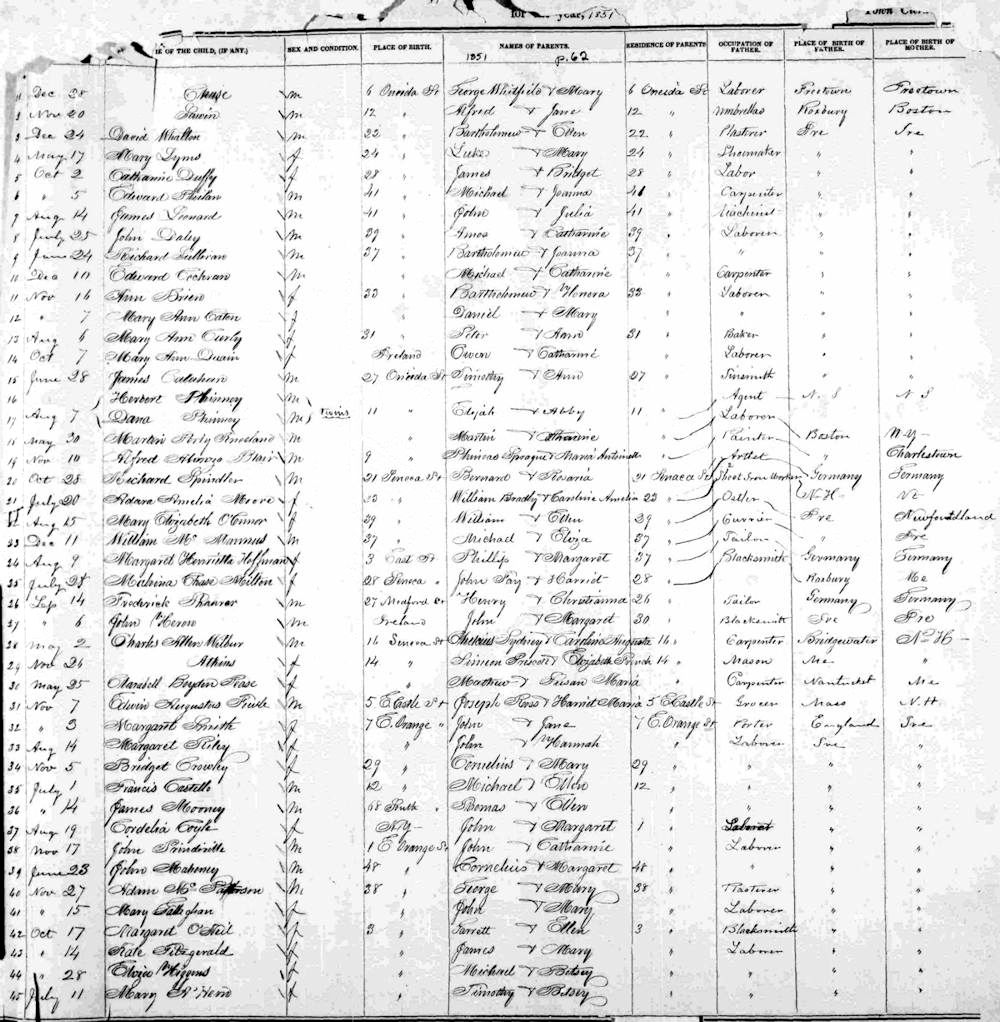 for year, 1851 Town
E OF THE CHILD, (IF ANY.) SEX AND CONDITION. PLACE OF BIRTH. NAMES OF PARENTS. RESIDENCE OF PARENTS OCCUPATION OF FATHER. PLACE OF BIRTH OF FATHER. PLACE OF BIRTH OF MOTHER.
1851 p.62
Dec 28 m 6 Oneida St George Whitfield & Mary 6 Oneida St Laborer Freetown Freetown
2 Nov 20 m 12 " Alfred & Jane 12 " Umbrellas Roxbury Boston
3 Dec 24 David Whalton m 22 " Bartholomew & Ellen 22 " Plasterer Ire Ire
4 May 17 Mary Lyms f 24 " Luke & Mary 24 " Shoemaker " "
5 Oct 2 Catharine Duffy f 28 " James & Bridget 28 " Labor " "
6 " 5 Edward Phelan m 41 " Michael & Joanna 41 " Carpenter " "
7 Aug 14 James Leonard m 41 " John & Julia 41 " Machinist " "
8 July 25 John Daley m 39 " Amos & Catharine 39 " Laborer " "
9 June 24 Richard Sullivan m 37 " Bartholomew & Joanna 37 " " " "
10 Dec 10 Edward Cochran m " Michael & Catharine Carpenter " "
11 Nov 16 Ann Brien f 33 " Bartholomew & Honora 33 " Laborer " "
12 " 7 Mary Ann Eaton f Daniel & Mary " " "
13 Aug 6 Mary Ann Curly f 31 " Peter & Ann 31 " Baker " "
14 Oct 7 Mary Ann Dwain f Ireland Owen & Catharine Laborer " "
15 June 28 James Calahan m 27 Oneida St Timothy & Ann 27 " Tinsmith " "
16 Herbert Phinney m Agent N. S N S
17 Aug 7 Dana Phinney m Twins 11 " Elijah & Abby 11 " Laborer
18 May 30 Martin m " Martin & Painter Boston N.Y
19 Nov 10 Alfred Alonzo Blair m 9 " Phineas Sprague & Maria Antoinette Artist " Charlestown
20 Oct 28 Richard Spindler m 21 Seneca St Bernard & Rosaria 21 Seneca St Sheet Iron Worker Germany Germany
21 July 20 Adara Amelia Moore f 23 " William Bradly & Caroline Amelia 23 " N. H. Vt
Aug 15 Mary Elizabeth O'Connor f 29 " William & Ellen 29 " Currier Ire Newfoundland
23 Dec 11 William Mc Mannus m 37 " Michael & Eliza 37 " Tailor " Ire
24 Aug 9 Margaret Henrietta Hoffman f 3 East St Phillip & Margaret 37 " Blacksmith Germany Germany
25 July 25 Malvina Chase Milton f 28 Seneca " John Jay & Harriet 28 " Roxbury Me
26 Sep 14 Frederick m 27 Medford Ct Henry & Christianna 26 " Tailor Germany Germany
27 " 6 John m Ireland John & Margaret 30 " Blacksmith Ire Ire
28 May 2 Charles Allen Wilbur m 16 Seneca St Sydney & Caroline Augusta 16 " Carpenter Bridgewater No H
29 Nov 26 Atkins f 14 " Simeon Prescott & Elizabeth 14 " Mason Me "
30 May 25 Boyden Pease f " Matthew & Susan Maria Carpenter Nantucket Me
31 Nov 7 Edwin Augustus m 5 E Castle St Joseph Ross & Harriet Maria 5 E Castle St Grocer Mass N. H.
32 " 3 Margaret Smith f 7 E. Orange " John & Jane 7 E. Orange St Porter England Ire
33 Aug 14 Margaret Riley f " John & Hannah " Laborer Ire "
34 Nov 5 Bridget Crowley f 29 " Cornelius & Mary 29 " " " "
35 July 1 Francis Castello m 12 " Michael & Ellen 12 " " " "
36 " 14 James Mooney m 68 South " Thomas & Ellen " " "
37 Aug 19 Cordelia Coyle f N.Y John & Margaret 1 " Laborer " "
38 Nov 17 John Prindeville m 1 E Orange St John & Catharine " Laborer " "
39 June 23 John Mahoney m 48 " Cornelius & Margaret 48 " " " "
40 Nov 27 Adam Mc m 38 " George & Mary 38 " Plasterer " "
41 " 15 Mary f " John & Mary " Laborer " "
42 Oct 17 Margaret O'Neil f 3 " Garrett & Ellen 3 " Blacksmith " "
43 " 14 Kate Fitzgerald f " James & Mary " Laborer " "
44 " 28 Eliza Higgins f " Michael & Betsey " " " "
45 July 11 Mary f " Timothy & Betsey " " " "